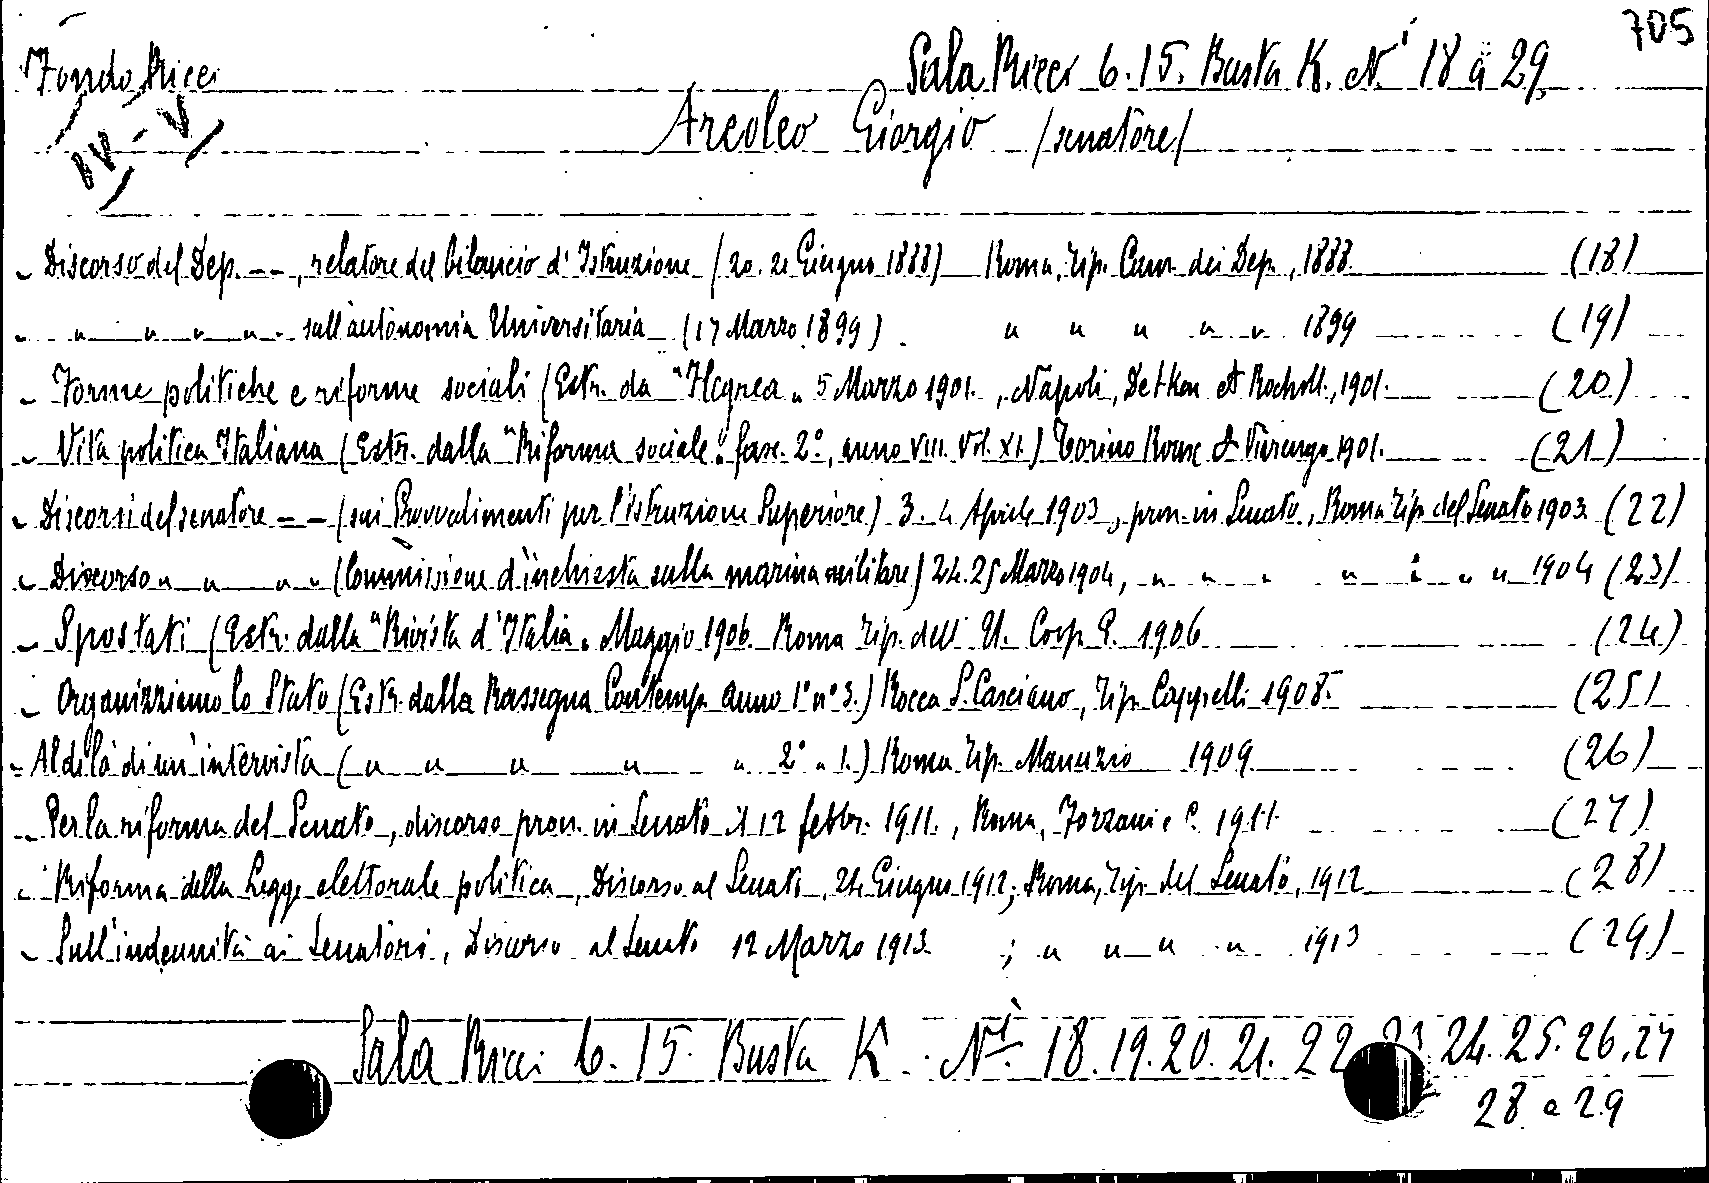 705
Fondo Ricci Sala Ricci 6.15. Busta K. Nⁱ 18 a 29.
IV - V
Arcoleo Giorgio /senatore/
- Discorso del Dep. --, relatore del bilancio d'Istruzione (20. 21 Giugno 1888) Roma, Tip. Cam. dei Dep., 1888 (18)
- " " " " " sull'autonomia Universitaria (17 Marzo 1899). " " " " " 1899 (19)
- Forme politiche e riforme sociali (Estr. da "Flegrea" 5 Marzo 1901., Napoli, Detken et Rocholl., 1901. (20)
- Vita politica Italiana (Estr. dalla "Riforma sociale". fasc. 2°, anno VIII. Vol. XI.) Torino Roux & Viarengo 1901. (21)
- Discorsi del senatore -- (sui Provvedimenti per l'istruzione Superiore) 3. 4 Aprile 1903, pron. in Senato, Roma Tip. del Senato 1903. (22)
- Discorso " " " " (Commissione d'inchiesta sulla marina militare) 24. 25 Marzo 1904, " " " " " " " 1904 (23)
- Spostati (Estr. dalla "Rivista d'Italia" Maggio 1906. Roma Tip. dell' U. Coop. E. 1906 (24)
- Organizziamo lo Stato (Estr. dalla Rassegna Contemp. anno 1° n° 3.) Rocca S. Casciano, Tip. Cappelli 1908. (25)
- Al di là di un'intervista ( " " " " " 2° " 1.) Roma Tip. Manuzio 1909 (26)
- Per la riforma del Senato, discorso pron. in Senato il 12 febbr. 1911., Roma, Forzani e C. 1911. (27)
- Riforma della Legge elettorale politica, Discorso al Senato, 24 Giugno 1912; Roma, Tip. del Senato, 1912 (28)
- Sull'indennità ai Senatori, Discorso al Senato 12 Marzo 1913. ; " " " " 1913 (29)
Sala Ricci 6. 15. Busta K. Nⁱ. 18. 19. 20. 21. 22 23 24. 25. 26. 27
28 a 29